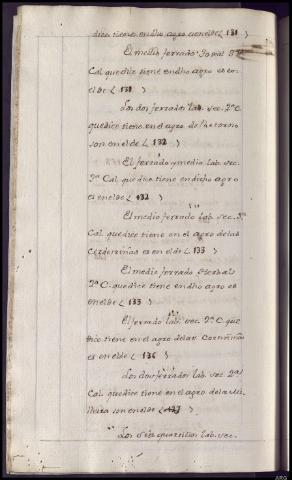 dice tiene en dho agro es en el de ( 131 )
El medio ferrado
Cal. que dice tiene en dho agro es en
el de ( 131 )
Los dos ferrados lab. sec. 2ª C.
que dice tiene en el agro de
son en el de ( 132 )
El ferrado y medio lab. sec.
2ª Cal. que dice tiene en dicho agro
es en el de ( 132 )
El medio ferrado lab. sec. 2ª
Cal. que dice tiene en el agro de las
Cerdeiriñas es en el de ( 133 )
El medio ferrado
2ª C. que dice tiene en dho agro es
en el de ( 133 )
El ferrado lab. sec. 2ª C. que
dice tiene en el agro de las
es en el de ( 136 )
Los dos ferrados lab. sec. 2ª
Cal. que dice tiene en el agro de la
son en el de ( 137 )
Los seis quartillos lab. sec.
ARG